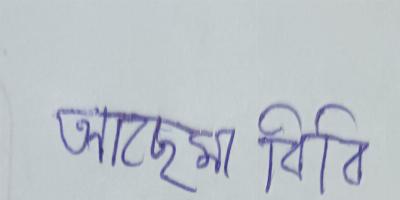 আছেমা বিবি